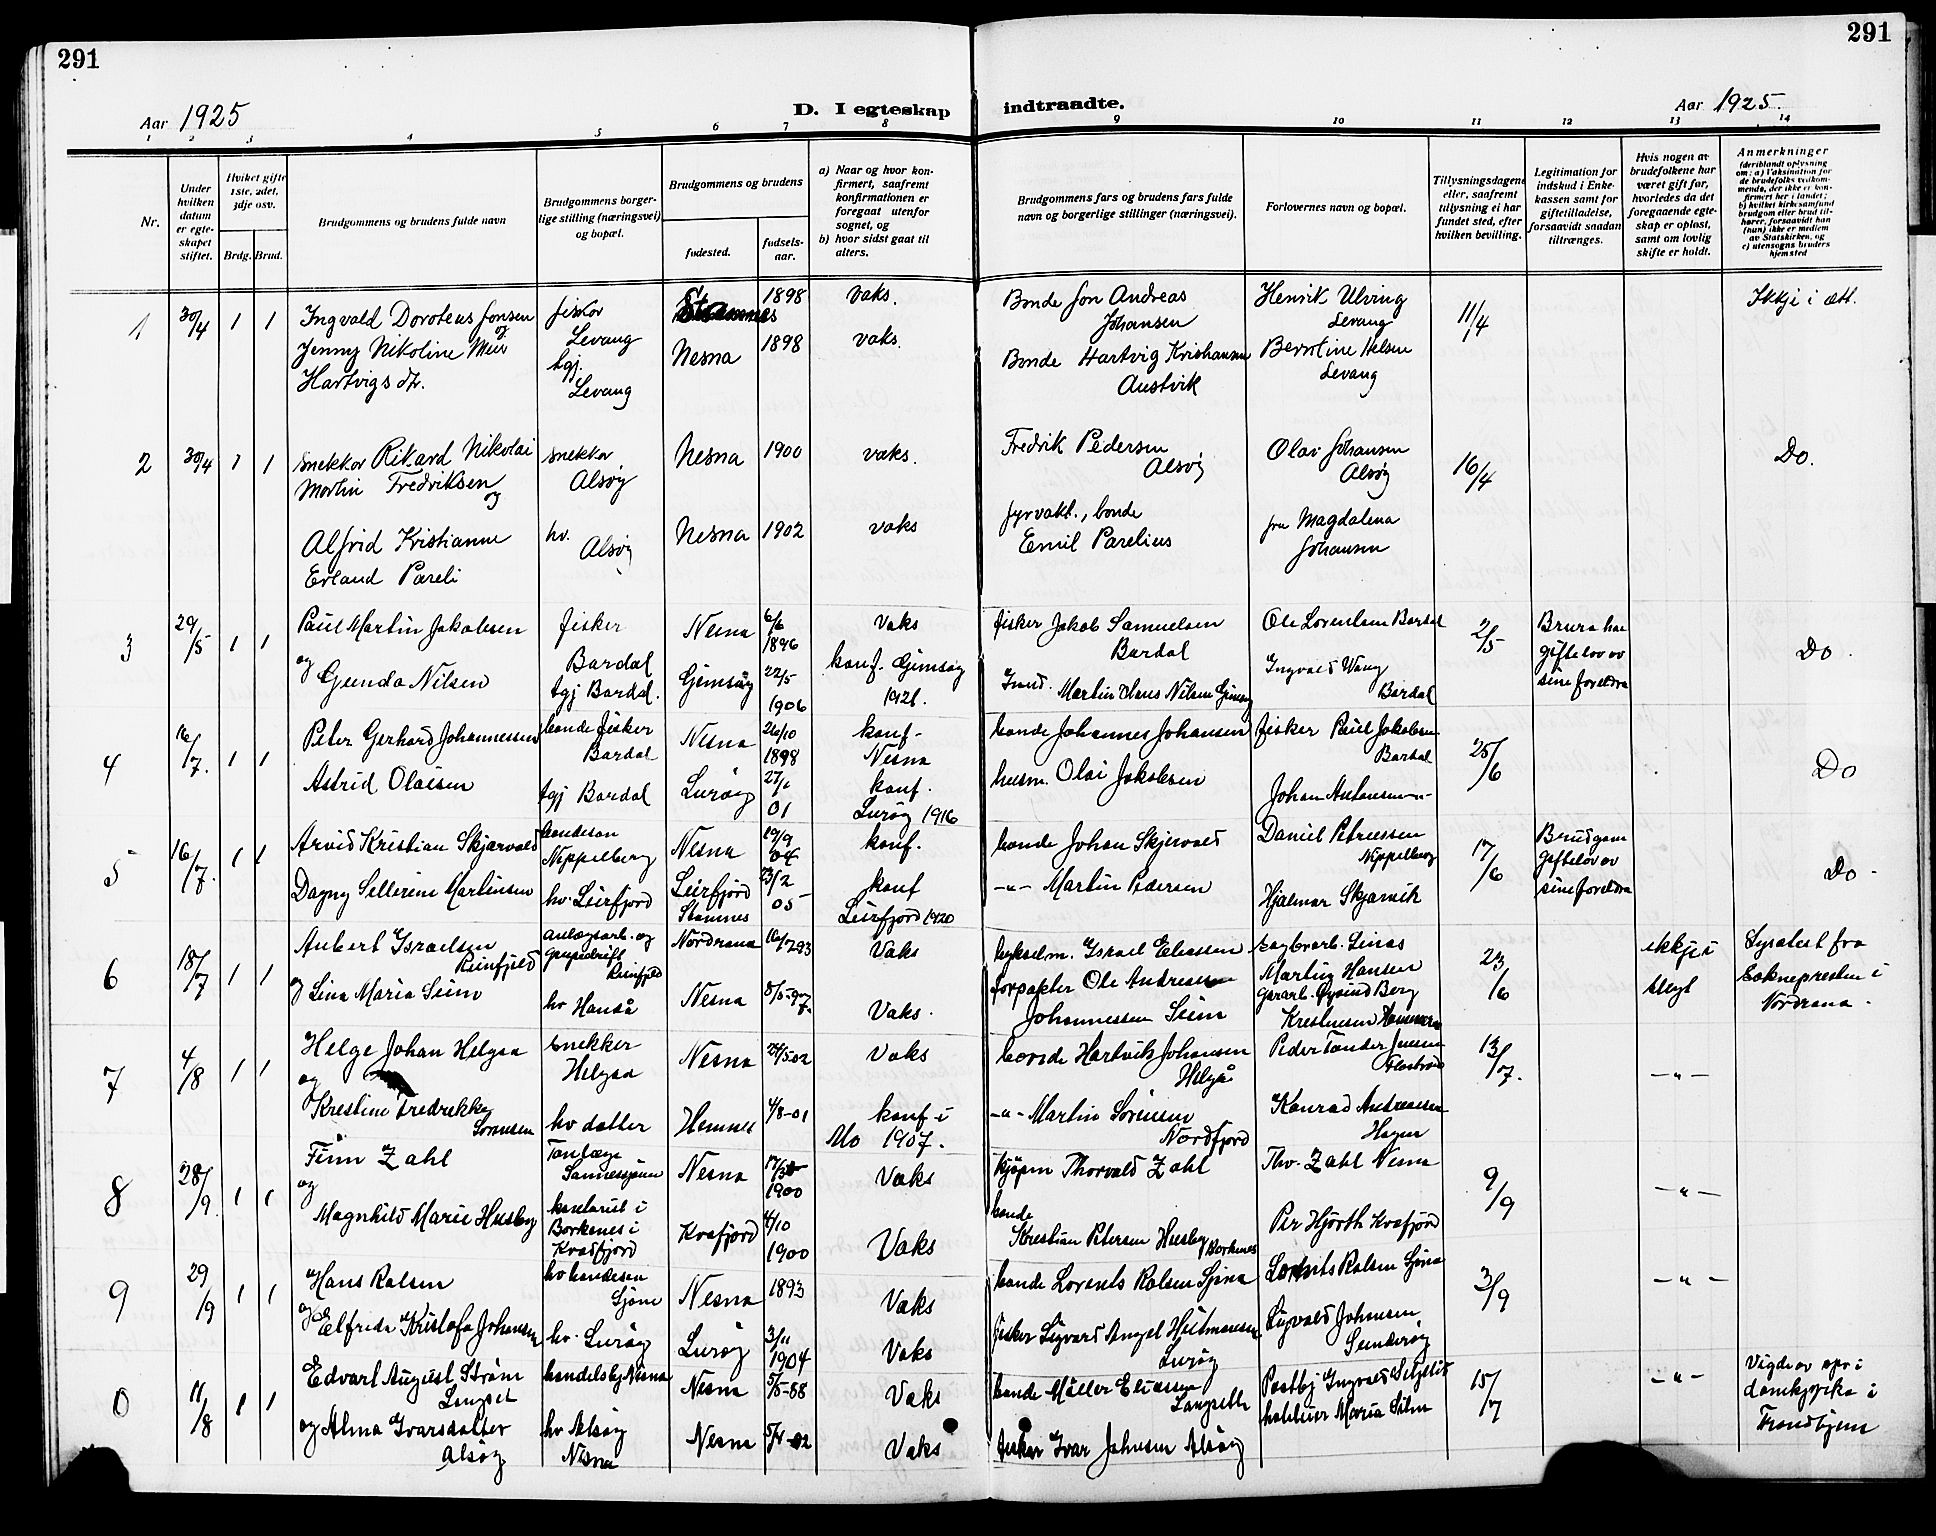 291
291
Aar 1925
D. I egteskap
indtraadte.
Aar 1925.
1 2 3 4 5 6 7 8 9 10 11 12 13 14
Nr.
Under hvilken datum er egteskapet stiftet.
Hvilket gifte 1ste, 2det, 3dje osv.
Brdg. Brud.
Brudgommens og brudens fulde navn
Brudgommens borgerlige stilling (næringsvei) og bopæl.
Brudgommens og brudens
fødested.
fødselsaar.
a) Naar og hvor konfirmert, saafremt konfirmationen er foregaat utenfor sognet, og
b) hvor sidst gaat til alters.
Brudgommens fars og brudens fars fulde navn og borgerlige stillinger (næringsvei).
Forlovernes navn og bopæl.
Tillysningsdagene eller, saafremt tillysning ei har fundet sted, efter hvilken bevilling.
Legitimation for indskud i Enkekassen samt for giftetilladelse, forsaavidt saadan tiltrænges.
Hvis nogen av brudefolkene har været gift før, hvorledes da det foregaaende egteskap er opløst, samt om lovlig skifte er holdt.
Anmerkninger
(deriblandt oplysning om: a) Vaksination for de brudefolks vedkommende, der ikke er konfirmert her i landet; b) hvilket kirkesamfund brudgom eller brud tilhører, forsaavidt han (hun) ikke er medlem av Statskirken, og c) utensogns bruders hjemsted
1 30/4 1 1 Ingvald Doroteus Jonsen fiskar Stamnes 1898 vaks. Bonde Jon Andreas Henrik Ulving 11/4 Ikkje i ætt.
og Levang Johansen Levang
Jenny Nikoline Meir tgj. Nesna 1898 vaks. Bonde Hartvig Kristiansen Berntine Nelsen
Hartvigsdtr. Levang Austvik Levang
2 30/4 1 1 snekkor Rikard Nikolai snekkor Nesna 1900 vaks. Fredrik Pedersen Olav Johansen 16/4 Do.
Martin Fredriksen og Alsøy Alsøy Alsøy
Alfrid Kristianne hv. Nesna 1902 vaks fyrvakt., bonde fru Magdalena
Erland Pareli Alsøy Emil Parelius Johansen
3 29/5 1 1 Paul Martin Jakobsen fisker Nesna 6/6 1896 Vaks fisker Jakob Samuelsen Ole Lorentsen Bardal 2/5 Brura har Do.
og Bardal Bardal giftelov av
Gunda Nilsen tgj Bardal. Gimsøy 22/5 1906 konf. Gimsøy 1921. Martin Hans Nilsen Gimsøy Ingvald Wang Bardal sine foreldra
4 16/7. 1 1 Peter Gerhard Johannessen bonde fisker Nesna 26/10 1898 konf. bonde Johannes Johansen fisker Paul Jakobsen 25/6 Do
Bardal Nesna Bardal
Astrid Olaisen tgj Bardal Lurøy 27/1 01 konf. Lurøy 1916 husm. Olai Jakobsen Johan Antonsen -"-
5 16/7. 1 1 Arvid Kristian Skjærvold bondeson Nesna 19/9 04 konf. bonde Johan Skjervold Daniel Petersen 17/6 Brudgom Do.
Nippelberg Nippelberg giftelov av
Dagny Sellerine Martinsen hv. Leirfjord Leirfjord Stamnes 23/2 05 konf Leirfjord 1920 -"- Martin Pedersen Hjalmar Skjærvik sine foreldra
6 18/7 1 1 Aubert Israelsen anlægsarb. og Nordrana 16/7 293 Vaks bykselm. Israel Eliassen Linas 23/6 ikkje i Lysatest fra
Reinfjeld Reinfjeld Martin Hansen slegt soknepresten i
og Lina Maria Seim hv Handå Nesna 8/5-97. Vaks. forpakter Ole Andreas Johannessen Seim Øyvind Berg Nordrana.
7 4/8 1 1 Helge Johan Helgaa snekker Nesna 24/5-02 Vaks bonde Hartvik Johansen Peder Tønder Jensen 13/7. -"-
og Helgaa Helgå
Kristine Fredrikke hv datter Hemnes 4/8-01 konf i -"- Martin Sørensen Konrad Andreassen
Sørensen Mo 1907. Nordfjord Hagen
8 28/9. 1 1 Finn Zahl Tanlæge Nesna 17/3 1900 Vaks kjøpm Thorvald Zahl Thv. Zahl Nesna 9/9 -"-
og Sannessjøen bonde
Magnhild Marie Husby i Borkenes i Kvæfjord Kvæfjord 4/10 1900 Vaks Kristian Petersen Husby Borkenes Per Hjorth Kvæfjord
9 29/9 1 1 Hans Ralsen Nesna 1893 Vaks bonde Lorents Ralsen Sjona Lorents Ralsen Sjona 3/9 -"-
og Sjona
Elfrida Kristofa Johansen hv. Lurøy Lurøy 3/11 1904 Vaks fisker Sigvard Angel Lurøy Sigvald Johansen
0 11/8 1 1 Edvart August Strøm handelsbg Nesna Nesna 5/5-88 Vaks bonde Møller Eliassen Postbg Ingvald 15/7 -"- Vigde av spr i
Langset Langseth Maria domkyrka i
og Alma Ivarsdatter hv Alsøy Nesna 5/4-02 Vaks fisker Ivar Johnsen Alsøy Trondhjem
Alsøy Nesna